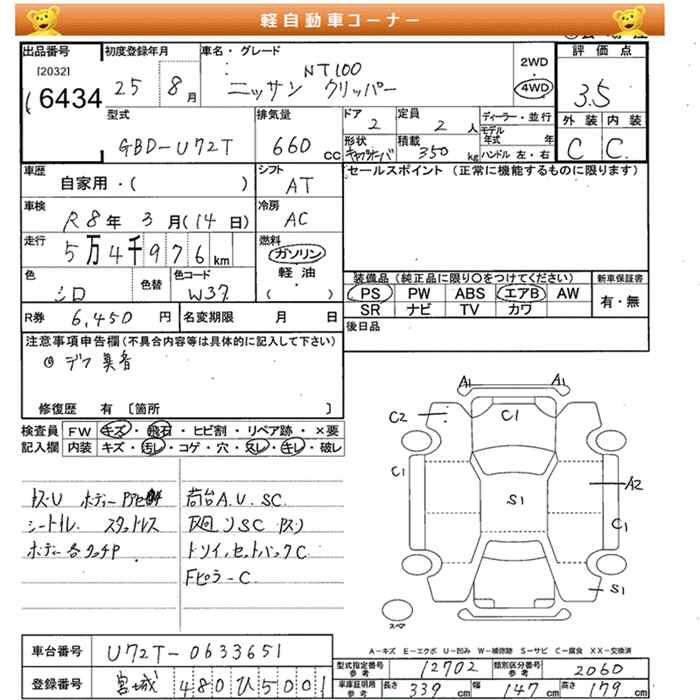 軽自動車コーナー
出品番号
[2032]
6434
初度登録年月
25 8月
車名・グレード
NT100
ニッサン クリッパー
2WD
4WD
評価点
3.5
外装 内装
C C
型式
GBD-U72T
排気量
660 cc
ドア
2
定員
2 人
ディーラー・並行
モデル年式 年
形状
積載
350 kg
ハンドル 左・右
車歴
自家用・( )
シフト
AT
セールスポイント (正常に機能するものに限ります)
車検
R8年 3月(14日)
冷房
AC
走行
5万4千976km
燃料
ガソリン
軽油
( )
色
シロ
色替
色コード
W37
装備品 (純正品に限り○をつけてください)
新車保証書
PS PW ABS エアB AW
有・無
SR ナビ TV カワ
R券 6,450 円
名変期限 月 日
後日品
注意事項申告欄(不具合内容等は具体的に記入して下さい)
◎デフ異音
修復歴 有 〔箇所 〕
検査員 FW キズ・飛石・ヒビ割・リペア跡・×要
記入欄 内装 キズ・汚レ・コゲ・穴・スレ・キレ・破レ
A1 A1
C2 C1
C1 S1 A2
C1
S1
荷台A.U.SC.
シートヤレ スタッドレス
トソイ、セットバックC
ボデー各タッチP
Fピラ-C
スペア
A-キズ E-エクボ U-凹み W-補修跡 S-サビ C-腐食 XX-交換済
車台番号 U72T-0633651
登録番号 宮城 480ひ5001
型式指定番号 参考 12702
類別区分番号 参考 2060
車庫証明用 参考 長さ 339 cm 幅 147 cm 高さ 179 cm